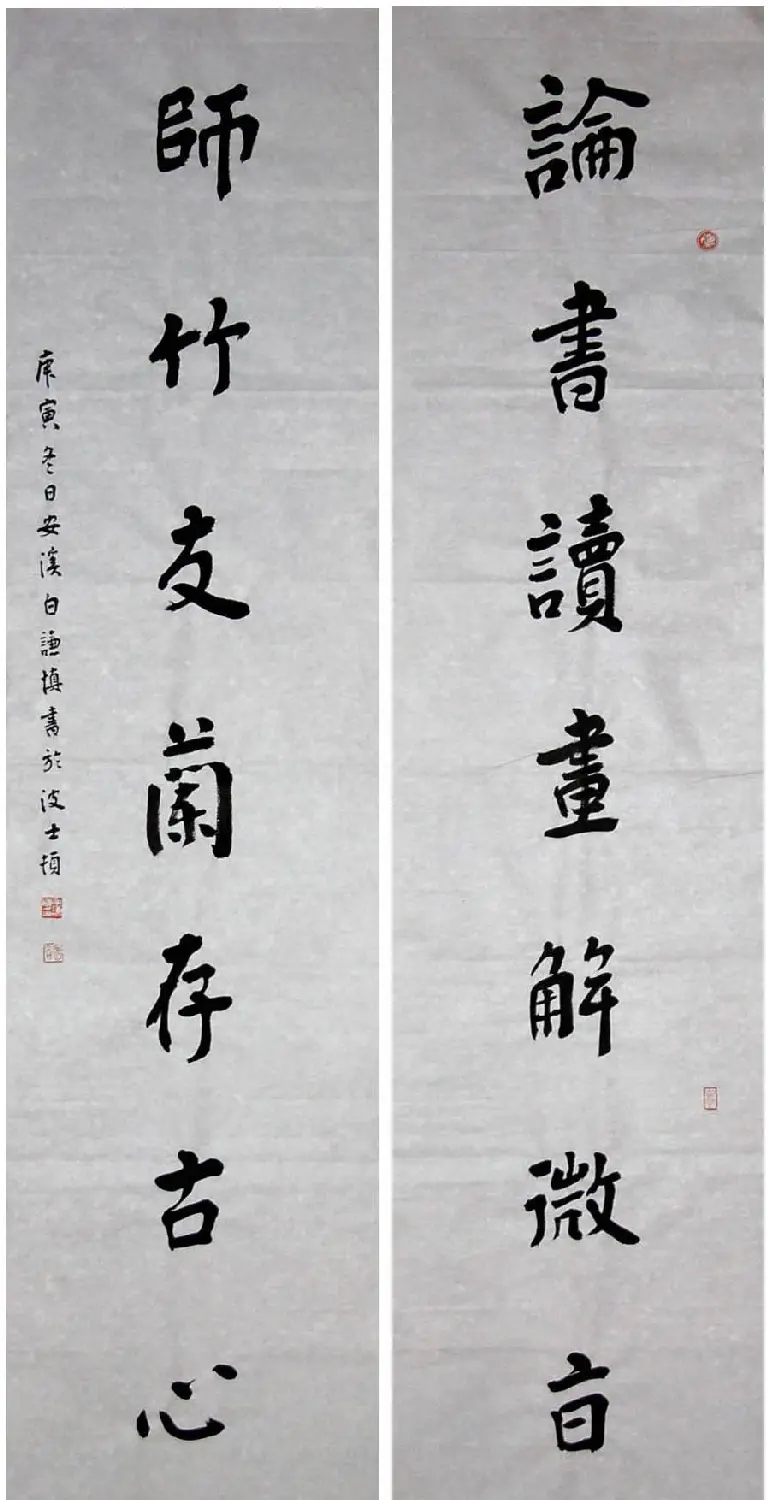 論書讀畫解微旨
師竹友蘭存古心
庚寅冬日安溪白謙慎書於波士頓